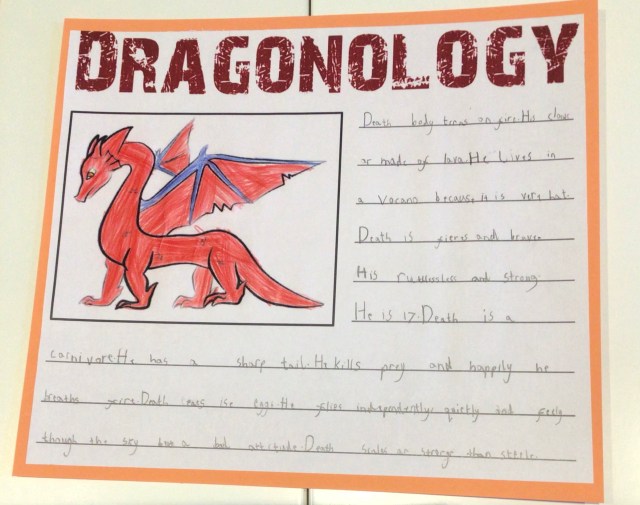 DRAGONOLOGY
Death body terns on fire. His claws
ar made of lava. He Lives in
a Vocano because it is very hot.
Death is fiers and brave.
His ruthlissliss and strong.
He is 17. Death is a
carnivore. He has a sharp tail. He kills prey and happily he
breaths firre. Death ise eggs. He flies independently, quietly and
though the sky has a bad attitude. Death scales ar than steele.